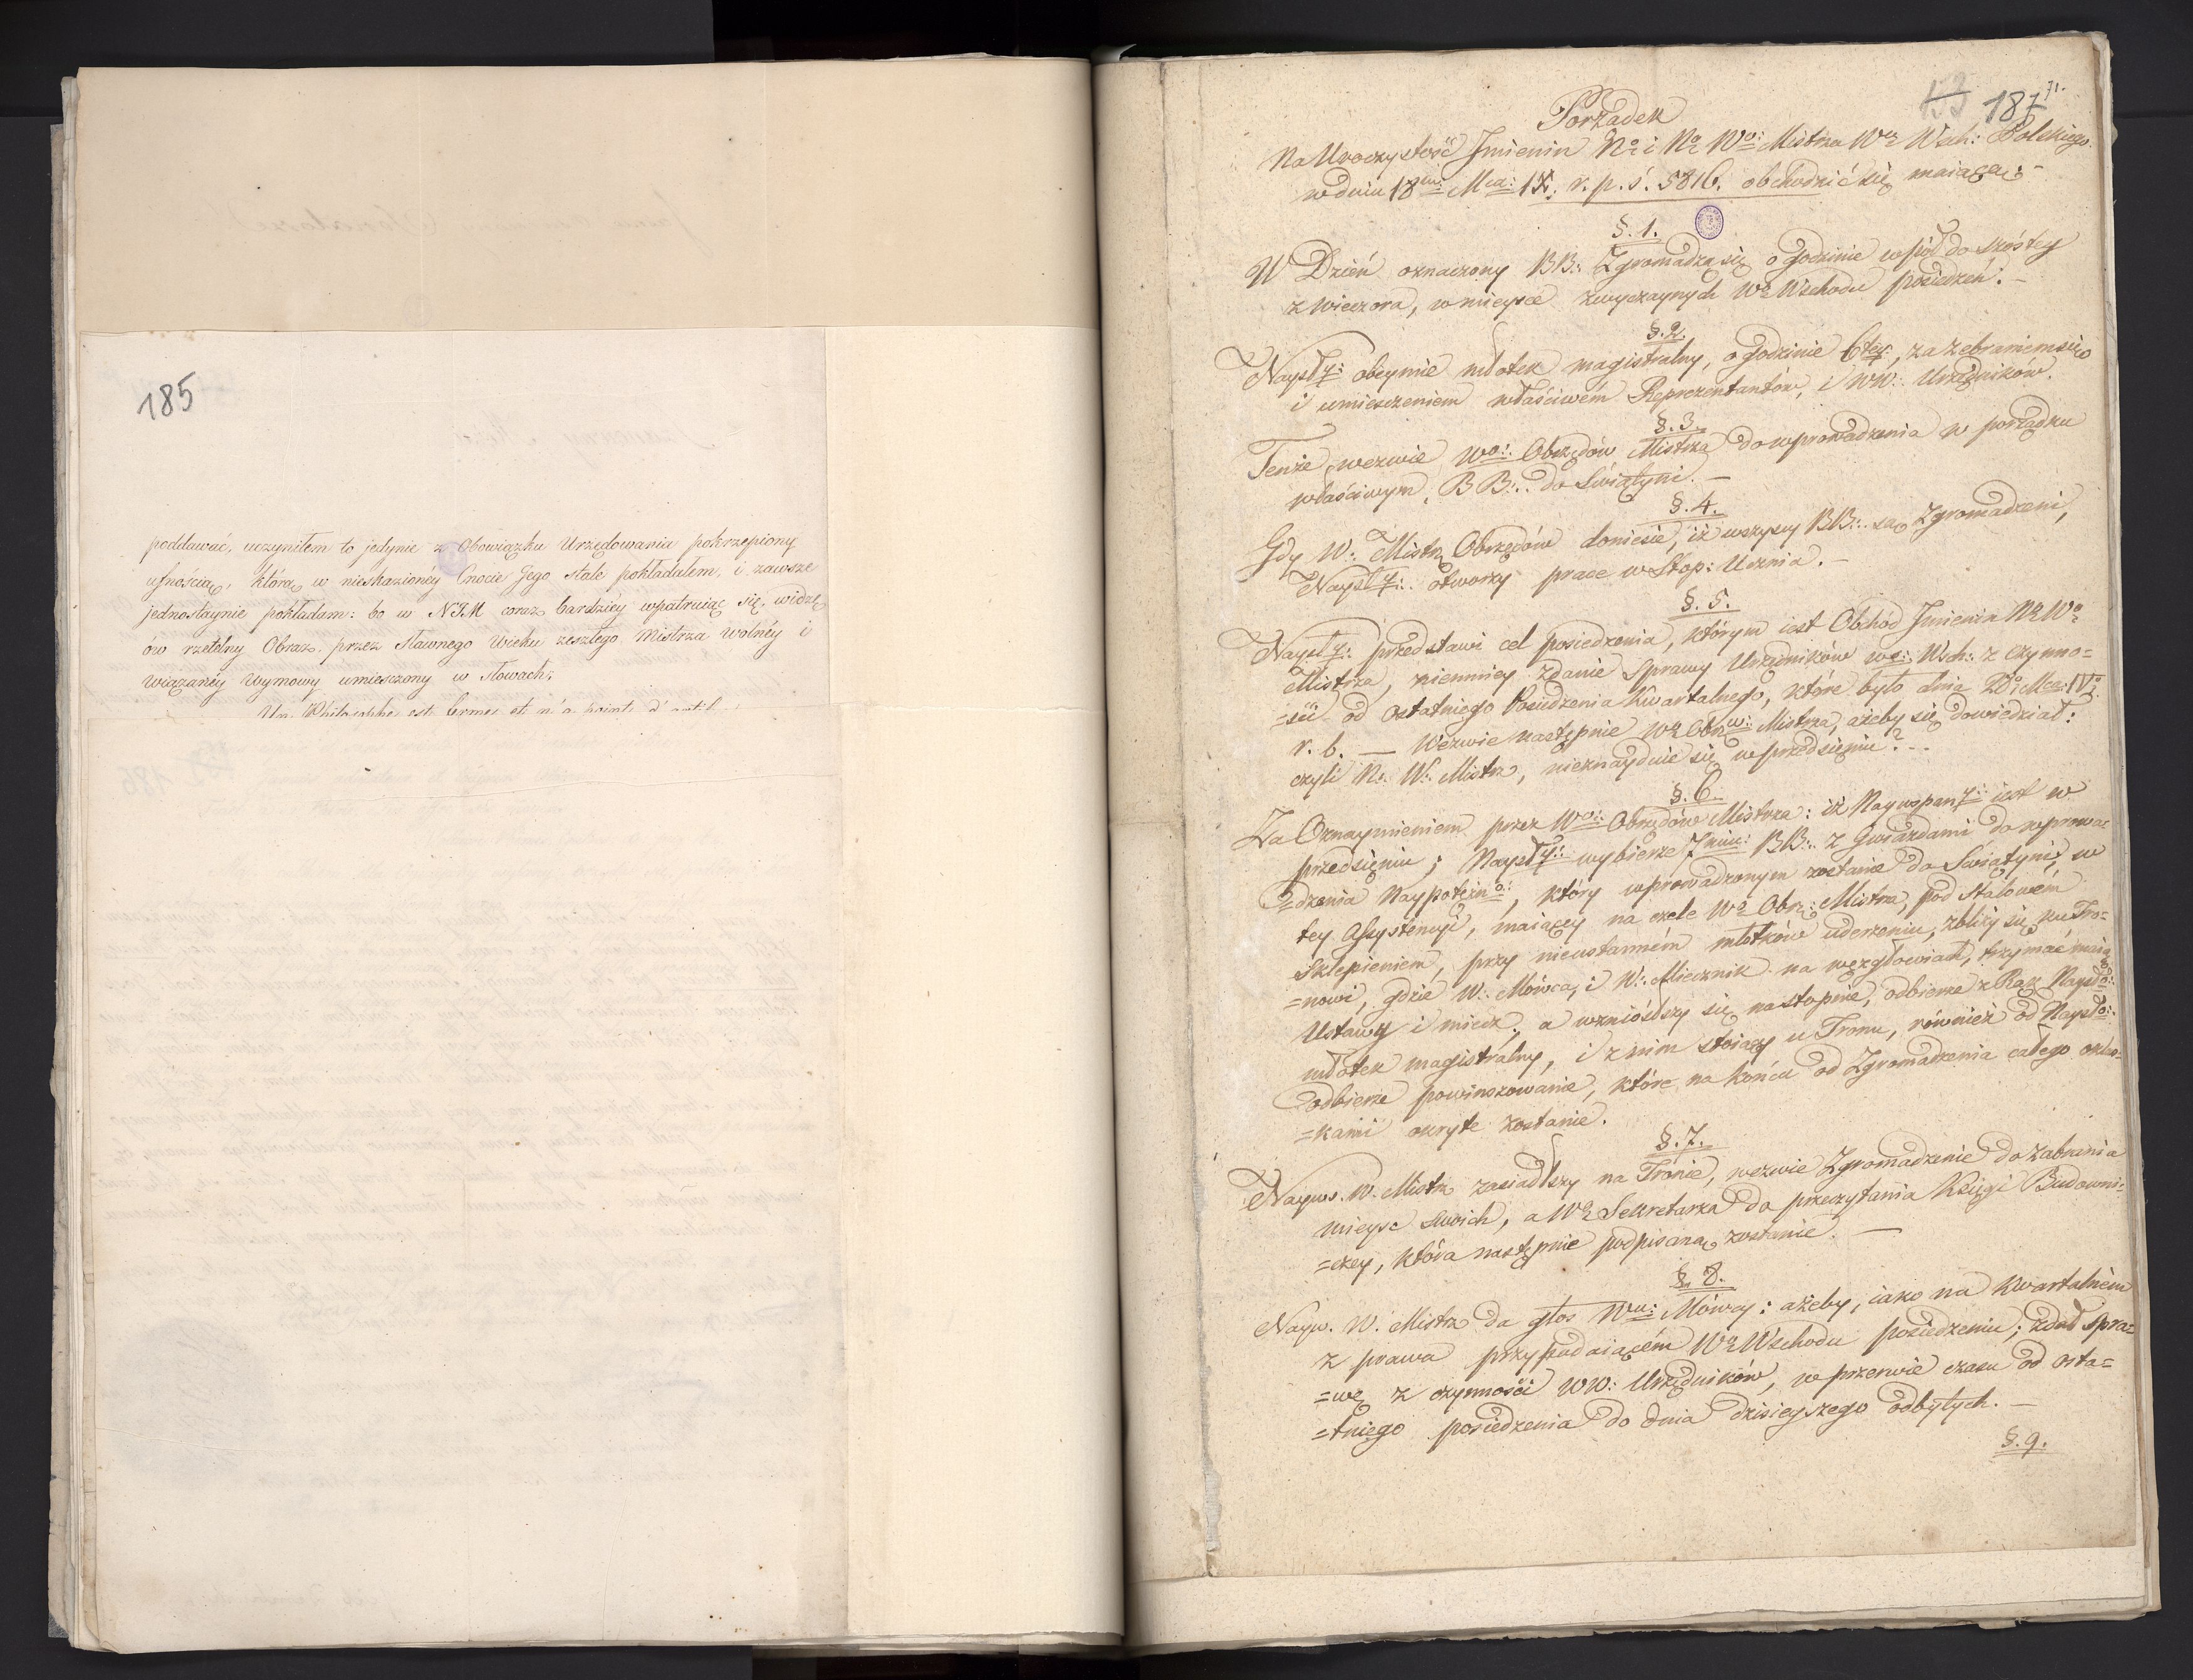 185
poddawać, uczyniłem to jedynie z Obowiązku Urzędowania pokrzepiony
ufnością, którą w nieskazionéy Cnocie Jego stale pokładałem, i zawsze
jednostaynie pokładam: bo w NJM coraz bardziéy wpatruiąc się, widzę
ów rzetelny Obraz przez Sławnego Wieku zeszłego Mistrza wolnéy i
wiązanéy wymowy umiesczony w Słowach;
Un Philosophe est ferme et n'a point d'
53 187
Porządek
Na Uroczystość Jmienin No: i No: Wo: Mistrza Wo: Wsch: Polskiego
w dniu 18 Mca: IX. r. p. ś. 5816. obchodzić się maiącą:-
§. 1.
W Dzień oznaczony BB:. Zgromadzą się o godzinie wpół do szóstey
z wieczora, w mieysce zwyczaynych Wo Wschodu posiedzeń. -
§. 2.
Naysł y: obeymie młotek magistralny, o godzinie 6tey:, za zebraniem się
i umiesczeniem właściwém Reprezentantów, i WW:. Urzędników.
§. 3.
Tenże wezwie Wo:. Obrzędów Mistrza do wprowadzenia w porządku
właściwym, BB:. do Świątyni. -
§. 4.
Gdy W:. Mistrz Obrzędów doniesie, iż wszyscy BB:. są Zgromadzeni,
Nayśł y:. otworzy prace w Stop: Ucznia. -
§. 5.
Naysł y: przedstawi cel posiedzenia, którym iest Obchod Jmienin No Wo
Mistrza, niemniey zdanie Sprawy Urzędników Wo: Wsch:. z czynno=
=ści od ostatniego Posiedzenia Kwartalnego, które było dnia 20 Mca: IV.
r. b. — Wezwie następnie Wo Obrz: Mistrza, ażeby się dowiedział:
czyli N. W:. Mistrz, nieznayduie się w przedsięniu? -
§. 6.
Za Oznaymieniem przez Wo:. Obrzędów Mistrza: iż Nayuspan y:. iest w
przedsięniu; Naysł y:. wybierze 7miu: BB:. z Gwiazdami do wprowa=
=dzenia Naypotężn o:, który wprowadzonym zostanie do Świątyni, w
tey Assystencyi, maiącey na czele Wo Obrz: Mistrza, pod Stalowém
Sklepieniem, przy nieustanném młotków uderzeniu, zbliży się ku Tro=
=nowi, gdzie W:. Mówca, i W:. Miecznik na węzgłowiach, trzymać maią
Ustawy i miecz; a wzniósłszy się na stopnie, odbierze z Rąk Naysł o:.
młotek magistralny, i z nim stoiący u Tronu, również od Naysł o:.
odbierze powinszowanie, które na końcu od Zgromadzenia całego oklas=
=kami okryte zostanie.
§. 7.
Nayws. W. Mistrz zasiadłszy na Tronie, wezwie Zgromadzenie do zabrania
mieysc swoich, a Wo Sekretarza do przeczytania Księgi Budowni=
=czey, która następnie podpisaną zostanie. —
§. 8.
Nayw. W. Mistrz da głos Wu: Mówcy: ażeby, iako na Kwartalném
z prawa przypadaiącém Wo Wschodu posiedzeniu; zdał Spra=
=wę z czynności WW: Urzędników, w przerwie czasu od osta=
=tniego posiedzenia do dnia dzisieyszego odbytych. —
§. 9.